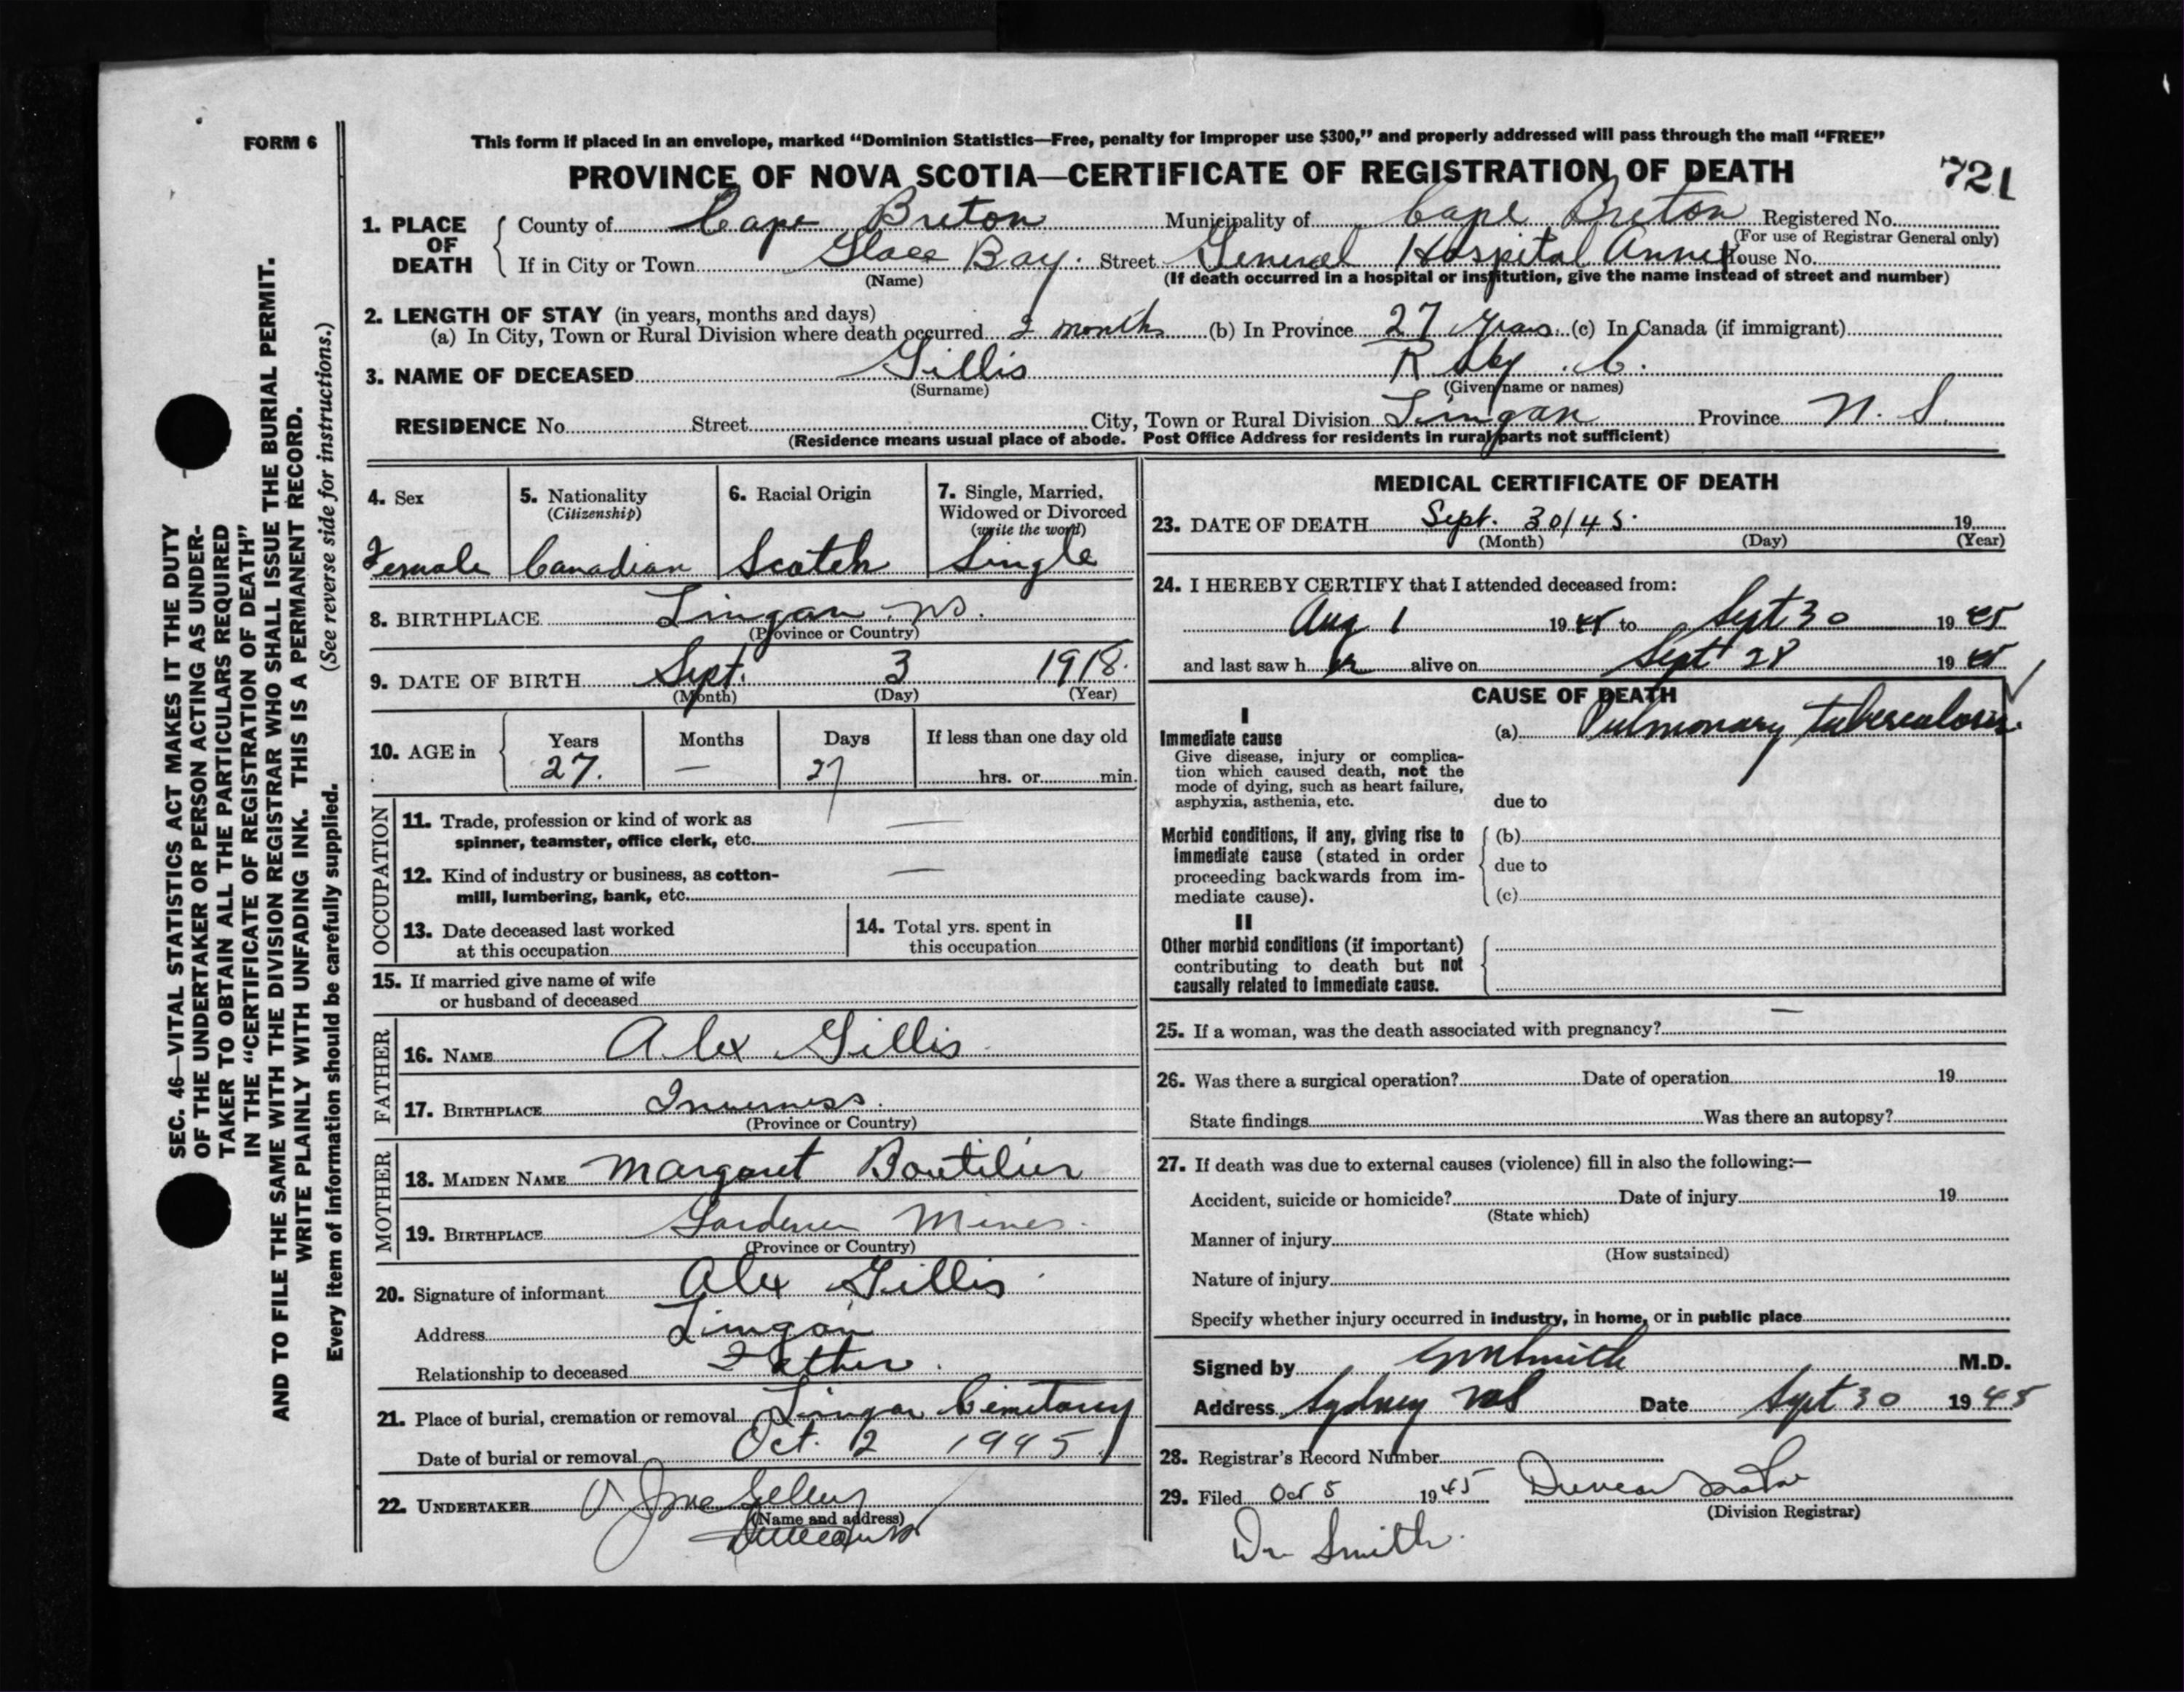 FORM 6
This form if placed in an envelope, marked “Dominion Statistics—Free, penalty for improper use $300,” and properly addressed will pass through the mail “FREE”
PROVINCE OF NOVA SCOTIA—CERTIFICATE OF REGISTRATION OF DEATH
721
1. PLACE OF DEATH
County of Cape Breton Municipality of Cape Breton Registered No.
(For use of Registrar General only)
If in City or Town Glace Bay. Street General Hospital Annex House No.
(Name) (If death occurred in a hospital or institution, give the name instead of street and number)
2. LENGTH OF STAY (in years, months and days)
(a) In City, Town or Rural Division where death occurred 2 months (b) In Province 27 years. (c) In Canada (if immigrant)
3. NAME OF DECEASED Gillis C.
(Surname) (Given name or names)
RESIDENCE No. Street City, Town or Rural Division Lingan Province N. S.
(Residence means usual place of abode. Post Office Address for residents in rural parts not sufficient)
4. Sex
Female
5. Nationality
(Citizenship)
Canadian
6. Racial Origin
Scotch
7. Single, Married, Widowed or Divorced
(write the word)
Single
8. BIRTHPLACE Lingan NS.
(Province or Country)
9. DATE OF BIRTH Sept. 3 1918.
(Month) (Day) (Year)
10. AGE in
Years Months Days If less than one day old
27. — 27 hrs. or min.
OCCUPATION
11. Trade, profession or kind of work as
spinner, teamster, office clerk, etc. —
12. Kind of industry or business, as cotton-
mill, lumbering, bank, etc. —
13. Date deceased last worked
at this occupation
14. Total yrs. spent in
this occupation
15. If married give name of wife
or husband of deceased
FATHER
16. NAME Alex Gillis
17. BIRTHPLACE Inverness.
(Province or Country)
MOTHER
18. MAIDEN NAME Margaret Boutilier
19. BIRTHPLACE Gardener Mines.
(Province or Country)
20. Signature of informant Alex Gillis
Address Lingan
Relationship to deceased Father.
21. Place of burial, cremation or removal Lingan Cemetary
Date of burial or removal Oct. 2 1945
22. UNDERTAKER
(Name and address)
MEDICAL CERTIFICATE OF DEATH
23. DATE OF DEATH Sept. 30/45. 19
(Month) (Day) (Year)
24. I HEREBY CERTIFY that I attended deceased from:
Aug 1 1945 to Sept 30 1945
and last saw her alive on Sept 28 1945
CAUSE OF DEATH
I
Immediate cause
Give disease, injury or complica-
tion which caused death, not the
mode of dying, such as heart failure,
asphyxia, asthenia, etc.
(a) Pulmonary tuberculosis.
due to
Morbid conditions, if any, giving rise to
immediate cause (stated in order
proceeding backwards from im-
mediate cause).
(b)
due to
(c)
II
Other morbid conditions (if important)
contributing to death but not
causally related to immediate cause.
25. If a woman, was the death associated with pregnancy? —
26. Was there a surgical operation? Date of operation 19
State findings Was there an autopsy?
27. If death was due to external causes (violence) fill in also the following:—
Accident, suicide or homicide? Date of injury 19
(State which)
Manner of injury
(How sustained)
Nature of injury
Specify whether injury occurred in industry, in home, or in public place
Signed by Smith M.D.
Address Sydney NS Date Sept 30 1945
28. Registrar's Record Number
29. Filed Oct 5 1945 Duncan
(Division Registrar)
Dr Smith.
SEC. 46—VITAL STATISTICS ACT MAKES IT THE DUTY
OF THE UNDERTAKER OR PERSON ACTING AS UNDER-
TAKER TO OBTAIN ALL THE PARTICULARS REQUIRED
IN THE “CERTIFICATE OF REGISTRATION OF DEATH”
AND TO FILE THE SAME WITH THE DIVISION REGISTRAR WHO SHALL ISSUE THE BURIAL PERMIT.
WRITE PLAINLY WITH UNFADING INK. THIS IS A PERMANENT RECORD.
Every item of information should be carefully supplied. (See reverse side for instructions.)